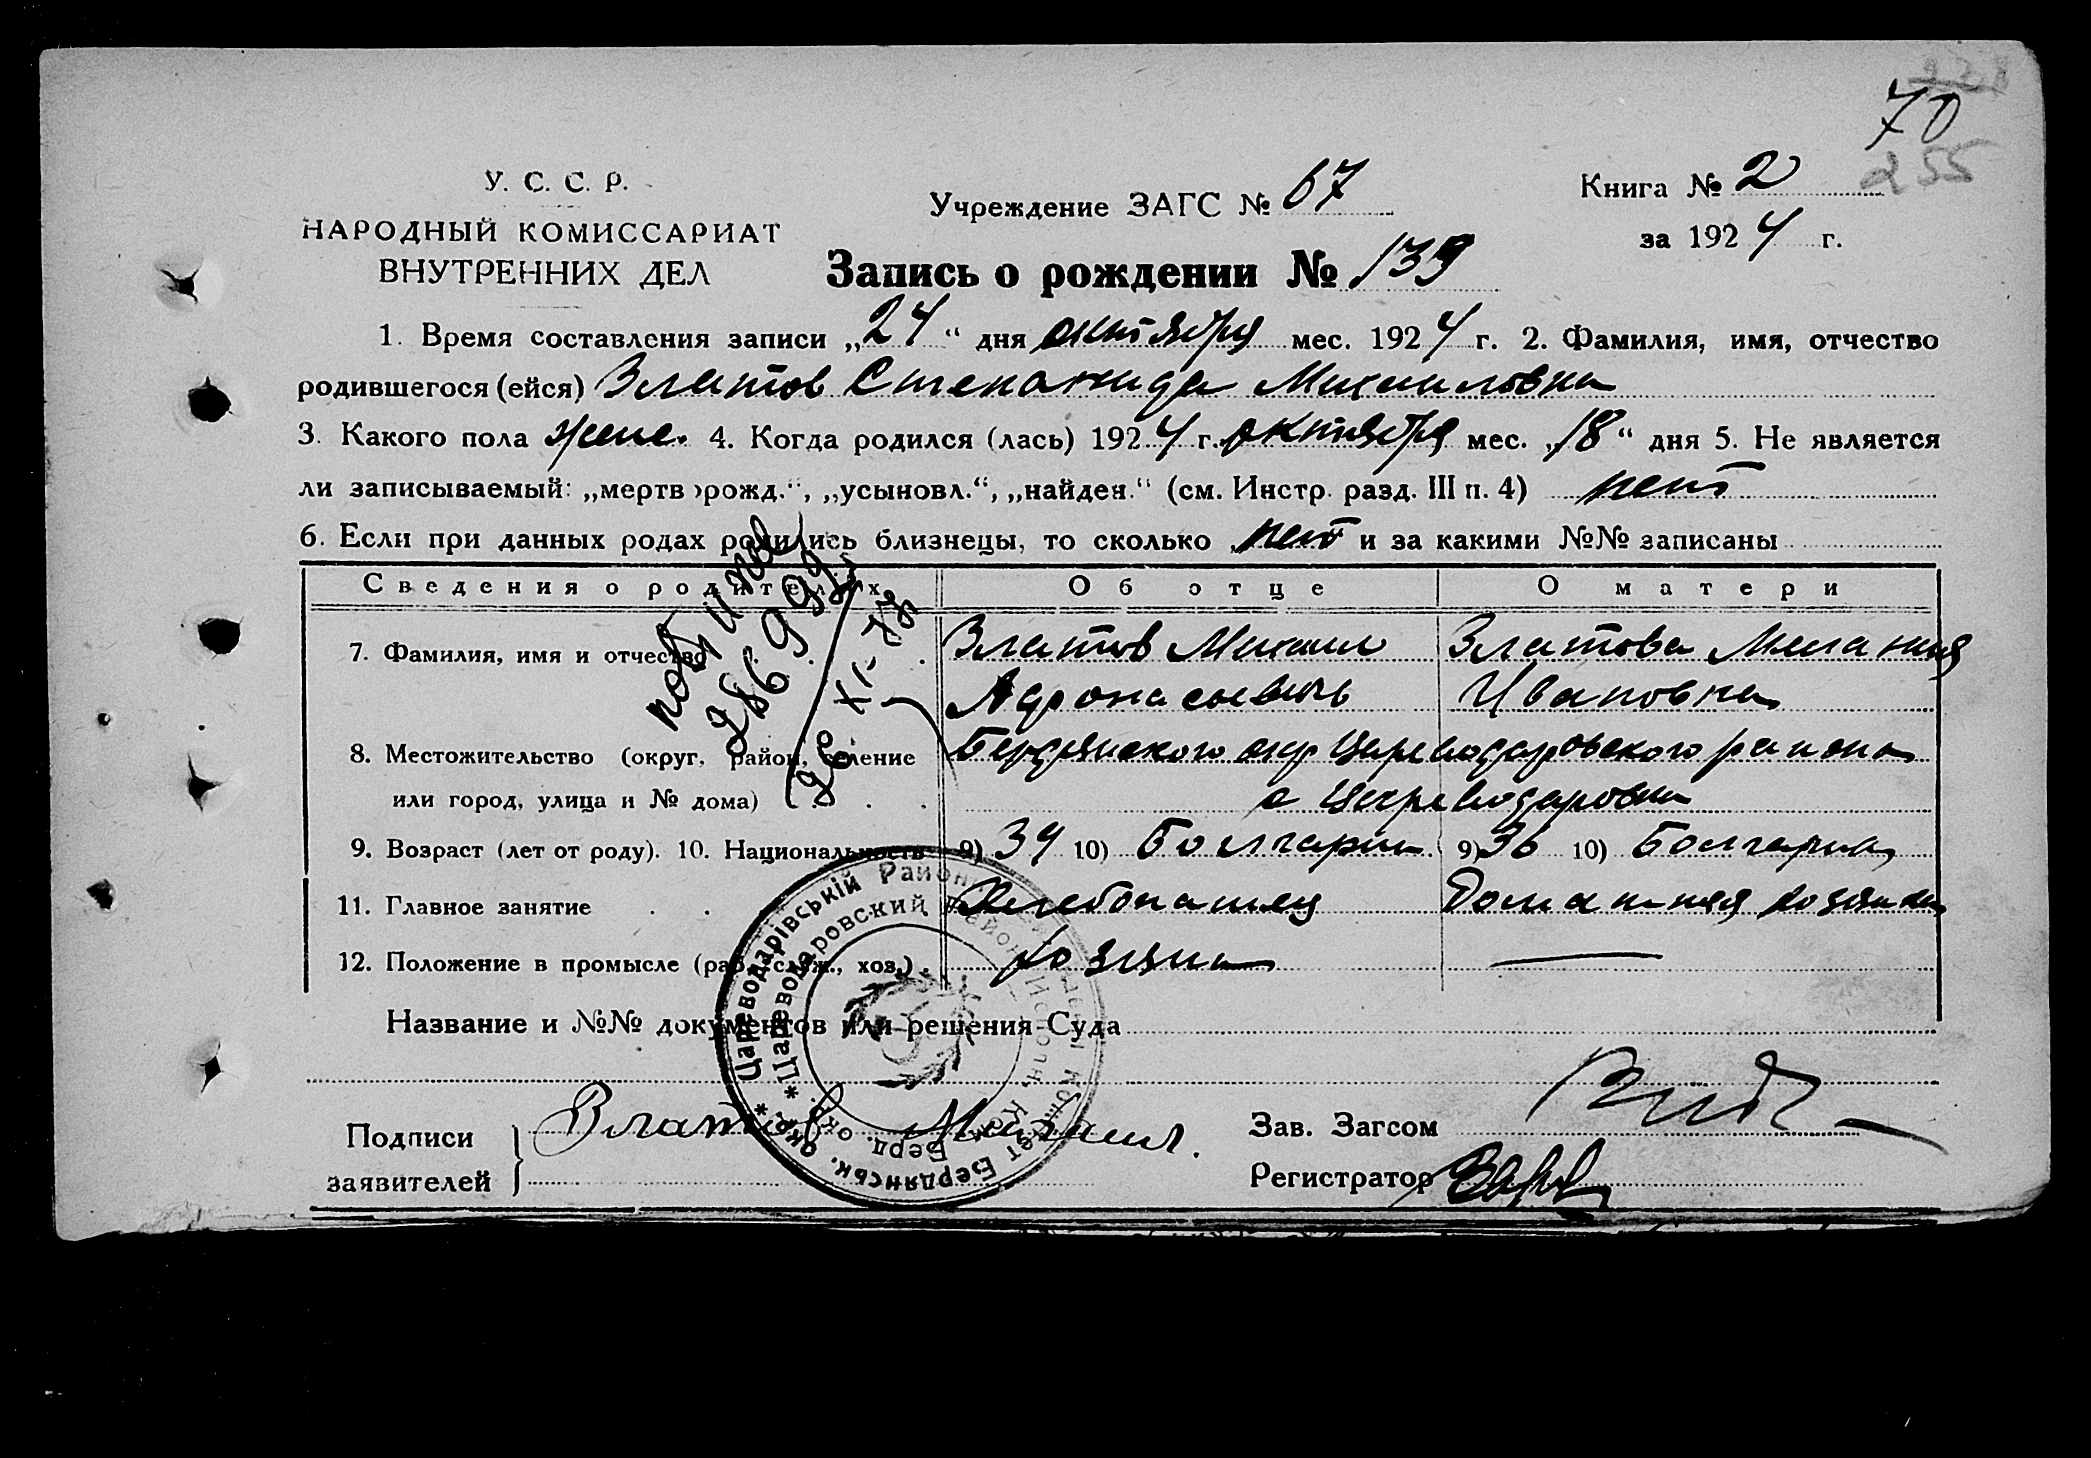 70
255
У. С. С. Р.
НАРОДНЫЙ КОМИССАРИАТ
ВНУТРЕННИХ ДЕЛ
Учреждение ЗАГС № 67
Книга № 2
за 1924 г.
Запись о рождении № 139
1. Время составления записи „24“ дня октября мес. 1924 г. 2. Фамилия, имя, отчество
родившегося (ейся) Златов Степанида Михаиловна
3. Какого пола женс. 4. Когда родился (лась) 1924 г. октября мес. „18“ дня 5. Не является
ли записываемый: „мертворожд.“, „усыновл.“, „найден.“ (см. Инстр. разд. III п. 4) нет
6. Если при данных родах родились близнецы, то сколько нет и за какими №№ записаны
Сведения о родителях Об отце О матери
7. Фамилия, имя и отчество Златов Михаил Златова Мелания
Афонасьевичь Ивановна
8. Местожительство (округ, район, селение Бердянского окр Цареводаровского района
или город, улица и № дома) с Цареводаровка
9. Возраст (лет от роду). 10. Национальность 9) 34 10) Болгарин 9) 36 10) Болгарка
11. Главное занятие Хлебопашец Домашняя хозяйка
12. Положение в промысле (раб., служ., хоз.) хозяин —
Название и №№ документов или решения Суда
Подписи
заявителей
Златов Михаил.
Зав. Загсом
Регистратор
286992
26 XI-73
* Цареводарівській Район. Комітет Бердянськ. окр.
* Цареводаровский Район. Исполн. Ком. Берд. окр.